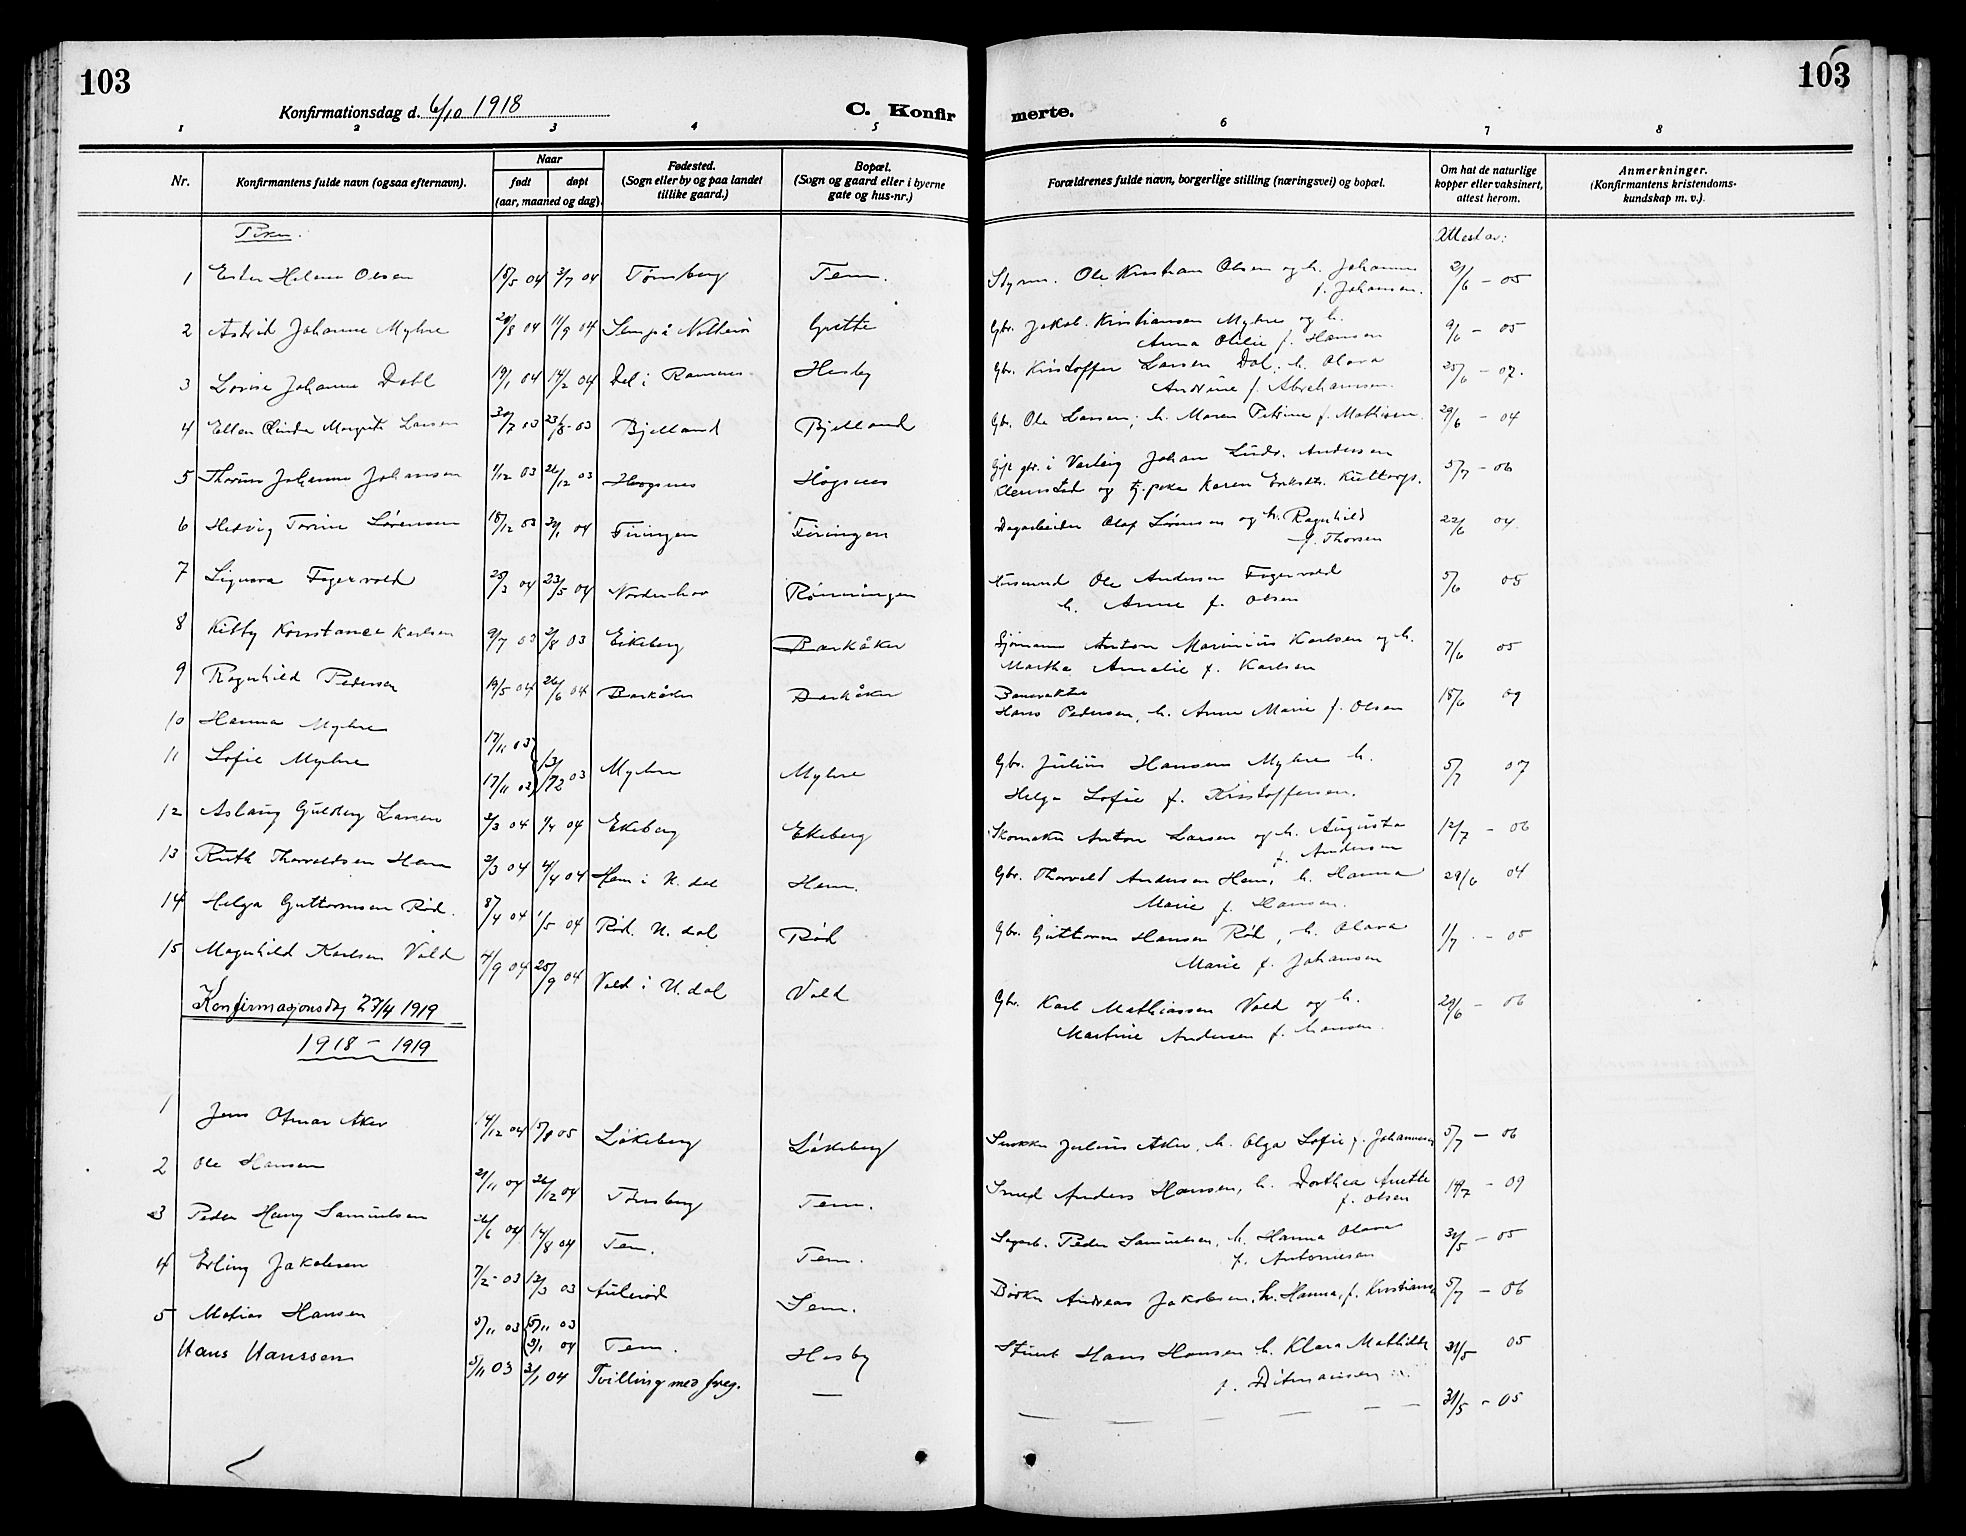 103
103
Konfirmationsdag d. 6/10 1918
C. Konfirmerte.
1 2 3 4 5 6 7 8
Nr.
Konfirmantens fulde navn (ogsaa efternavn).
Naar
født døpt
(aar, maaned og dag).
Fødested.
(Sogn eller by og paa landet
tillike gaard.)
Bopæl.
(Sogn og gaard eller i byerne
gate og hus-nr.)
Forældrenes fulde navn, borgerlige stilling (næringsvei) og bopæl.
Om hat de naturlige
kopper eller vaksinert,
attest herom.
Anmerkninger.
(Konfirmantens kristendoms-
kundskap m. v.).
Piker.
Attest av:
1 Ester Helene Olsen 18/5 04 3/7 04 Tønsberg Tem. Styrm. Ole Kristian Olsen og h. Johanne 21/6 - 05
f. Johansen.
2 Astrid Johanne Myhre 20/8 04 11/9 04 Grette Gbr. Jakob Kristiansen Myhre og h. 9/6 - 05
Anna Otilie f. Hansen
3 Lovise Johanne Dahl 19/1 04 14/2 04 Dal i Ramnes Hesby Gbr. Kristoffer Larsen Dal, h. Olava 25/6 - 07.
Andrine f. Abrahamsen.
4 Ellen Margrete Larsen 30/7 03 23/8 03 Bjelland Bjelland Gbr. Ole Larsen, h. Maren Petrine f. Mathisen. 29/6 - 04
5 Johanne Johansen 1/12 03 26/12 03 Høgsnes Gift gbr. i Johan Andersen 5/7 - 06
Klemstad og Karen
6 Hedvig Torine Sørensen 18/12 03 04 Föringen Dagarbeider Olaf Sørensen og h. Ragnhild 22/6 04.
f. Thorsen
7 Signora Fagervold 25/3 04 23/5 04 Norderhov Rønningen Ole Andersen Fagervold 5/6 05
h. Anne f. Olsen
8 Kitty Konstance Karlsen 9/7 03 2/8 03 Eikeberg Barkåker Sjömann Anton Marinius Karlsen og h. 7/6 05
Martha Amalie f. Karlsen
9 Ragnhild Pedersen 19/5 04 26/6 04 Barkåker Barkåker Banevakter 18/6 09
Hans Pedersen, h. Anne Marie f. Olsen
10 Hanna Myhre 17/11 03
11 Sofie Myhre 17/11 03 13/12 03 Myhre Myhre Gbr. Julius Hansen Myhre h. 5/7 07
Helga Sofie f. Kristoffersen.
12 Aslaug Guldberg Larsen 2/3 04 4/4 04 Ekeberg Ekeberg Skomaker Anton Larsen og h. Augusta 12/7 - 06
f. Andersen
13 Ruth Thorvaldsen Hem 2/3 04 4/4 04 Hem i U. dal Hem. Gbr. Thorvald Andersen Hem, h. Hanna 29/6 04
Marie f. Hansen.
14 Helga Guttormsen Rød. 8/4 04 1/5 04 Rød. U. dal Rød Gbr. Guttorm Hansen Rød, h. Olava 1/7 - 05
Marie f. Johansen
15 Magnhild Karlsen Vold 4/9 04 25/9 04 Vold i U. dal Vold Gbr. Karl Mathiassen Vold og h. 29/6 - 06
Martine Andersen f. Hansen.
Konfirmasjonsdag 27/4 1919
1918 - 1919
1 Jens Otmar Aker 14/12 04 15/8 05 Løkeberg Løkeberg Julius Aker, h. Olga Sofie f. Johannesen 5/7 - 06
2 Ole Hansen 21/11 04 26/12 04 Tønsberg Tem. Smed Anders Hansen, h. Dorthea Anette 19/7 - 09
f. Olsen
3 Peder Harry Samuelsen 26/6 04 14/8 04 Tem. Tem. Sagarb. Peder Samuelsen, h. Hanna Olava 31/5 - 05
f. Antonisen
4 Erling Jakobsen 7/2 - 03 12/3 03 Aulerød Sem. Bødker Andreas Jakobsen, h. Hanna, f. Kristians 5/7 - 06
5 Matias Hansen 5/11 03 5/11 03
3/1 04 Tem. Hesby Hans Hansen h. Klara Mathilde 31/5 05
f. Ditmansen
Hans Hanssen 5/11 03 3/1 04 Tvilling med foreg. — — — — — — 31/5 - 05